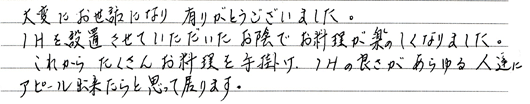 大変にお世話になり有りがとうございました。
IHを設置させていただいたお陰でお料理が楽のしくなりました。
これからたくさんお料理を手掛け、IHの良さがあらゆる人達に
アピール出来たらと思って居ります。